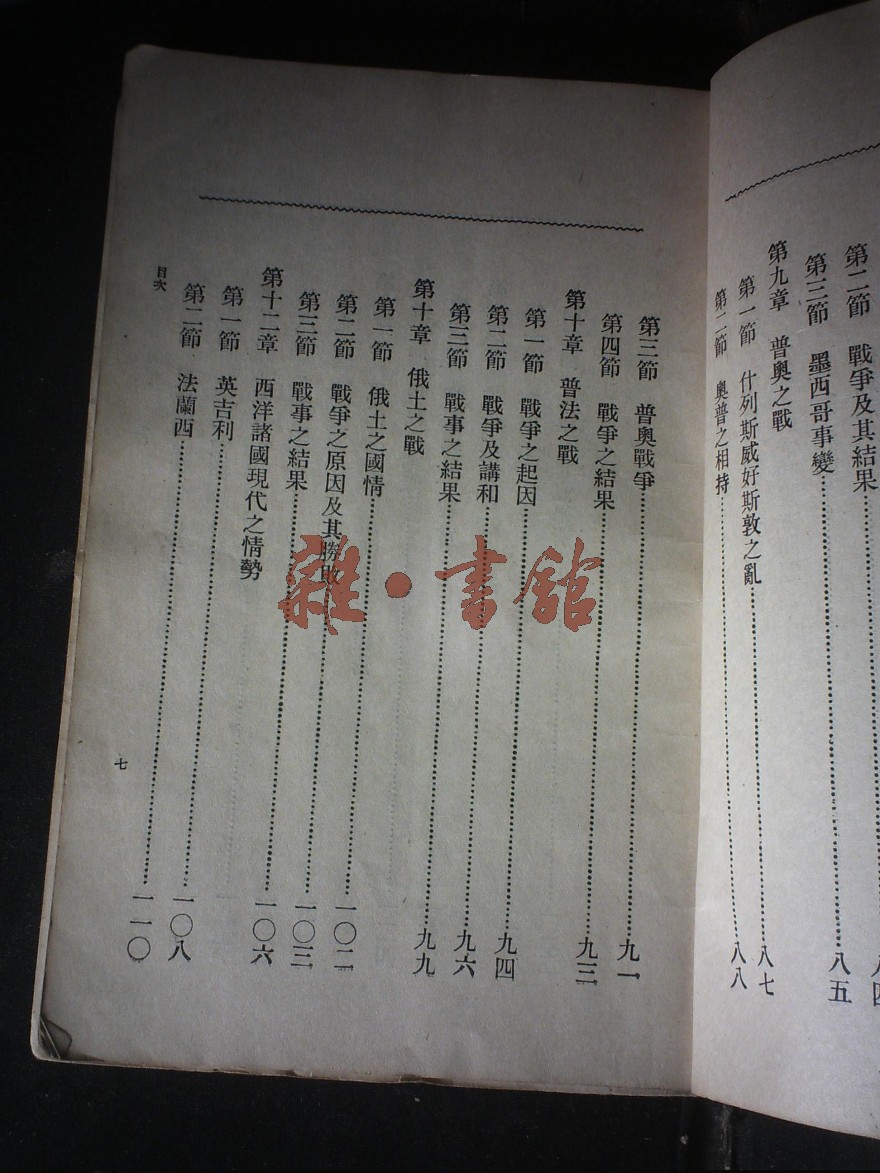 第二節 戰爭及其結果
第三節 墨西哥事變……八五
第九章 普奧之戰
第一節 什列斯威好斯敦之亂……八七
第二節 奧普之相持……八八
第三節 普奧戰爭……九一
第四節 戰爭之結果……九三
第十章 普法之戰
第一節 戰爭之起因……九四
第二節 戰爭及講和……九六
第三節 戰事之結果……九九
第十章 俄土之戰
第一節 俄土之國情……一〇二
第二節 戰爭之原因及其勝敗……一〇三
第三節 戰事之結果……一〇六
第十二章 西洋諸國現代之情勢
第一節 英吉利……一〇八
第二節 法蘭西……一一〇
目次
七
雜·書館